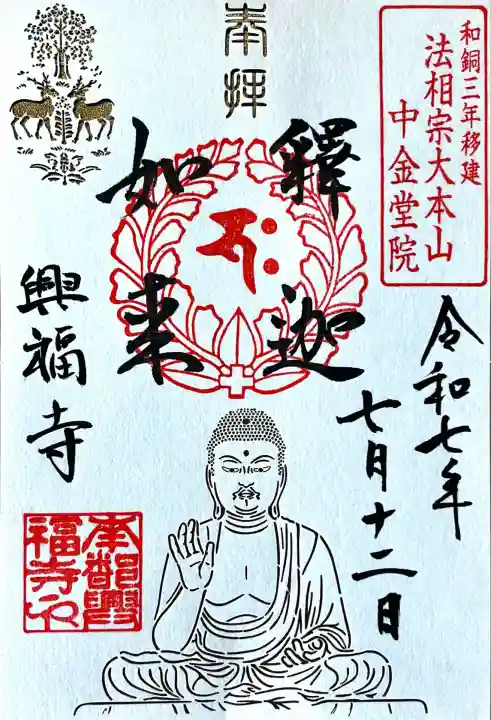 奉拝
和銅三年移建
法相宗大本山
中金堂院
令和七年
七月十二日
釋迦
如来
興福寺
南都興
福寺印